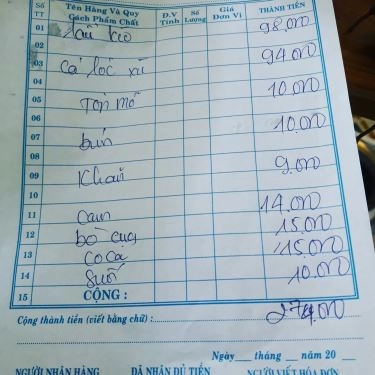 Số TT Tên Hàng Và Quy Cách Phẩm Chất Đ.V Tính Số Lượng Giá Đơn Vị THÀNH TIỀN
01 Lẩu kèo 98.000
02
03 Cá lóc xù 94.000
04
05 Tôm mố 10.000
06
07 bún 10.000
08
09 Khăn 9.000
10
11 Cam 14.000
12 bò cua 15.000
13 Coca 15.000
14 Suối 10.000
15 CỘNG : 274.000
Cộng thành tiền (viết bằng chữ) :
Ngày ___ tháng __ năm 20 __
NGƯỜI NHẬN HÀNG ĐÃ NHẬN ĐỦ TIỀN NGƯỜI VIẾT HÓA ĐƠN